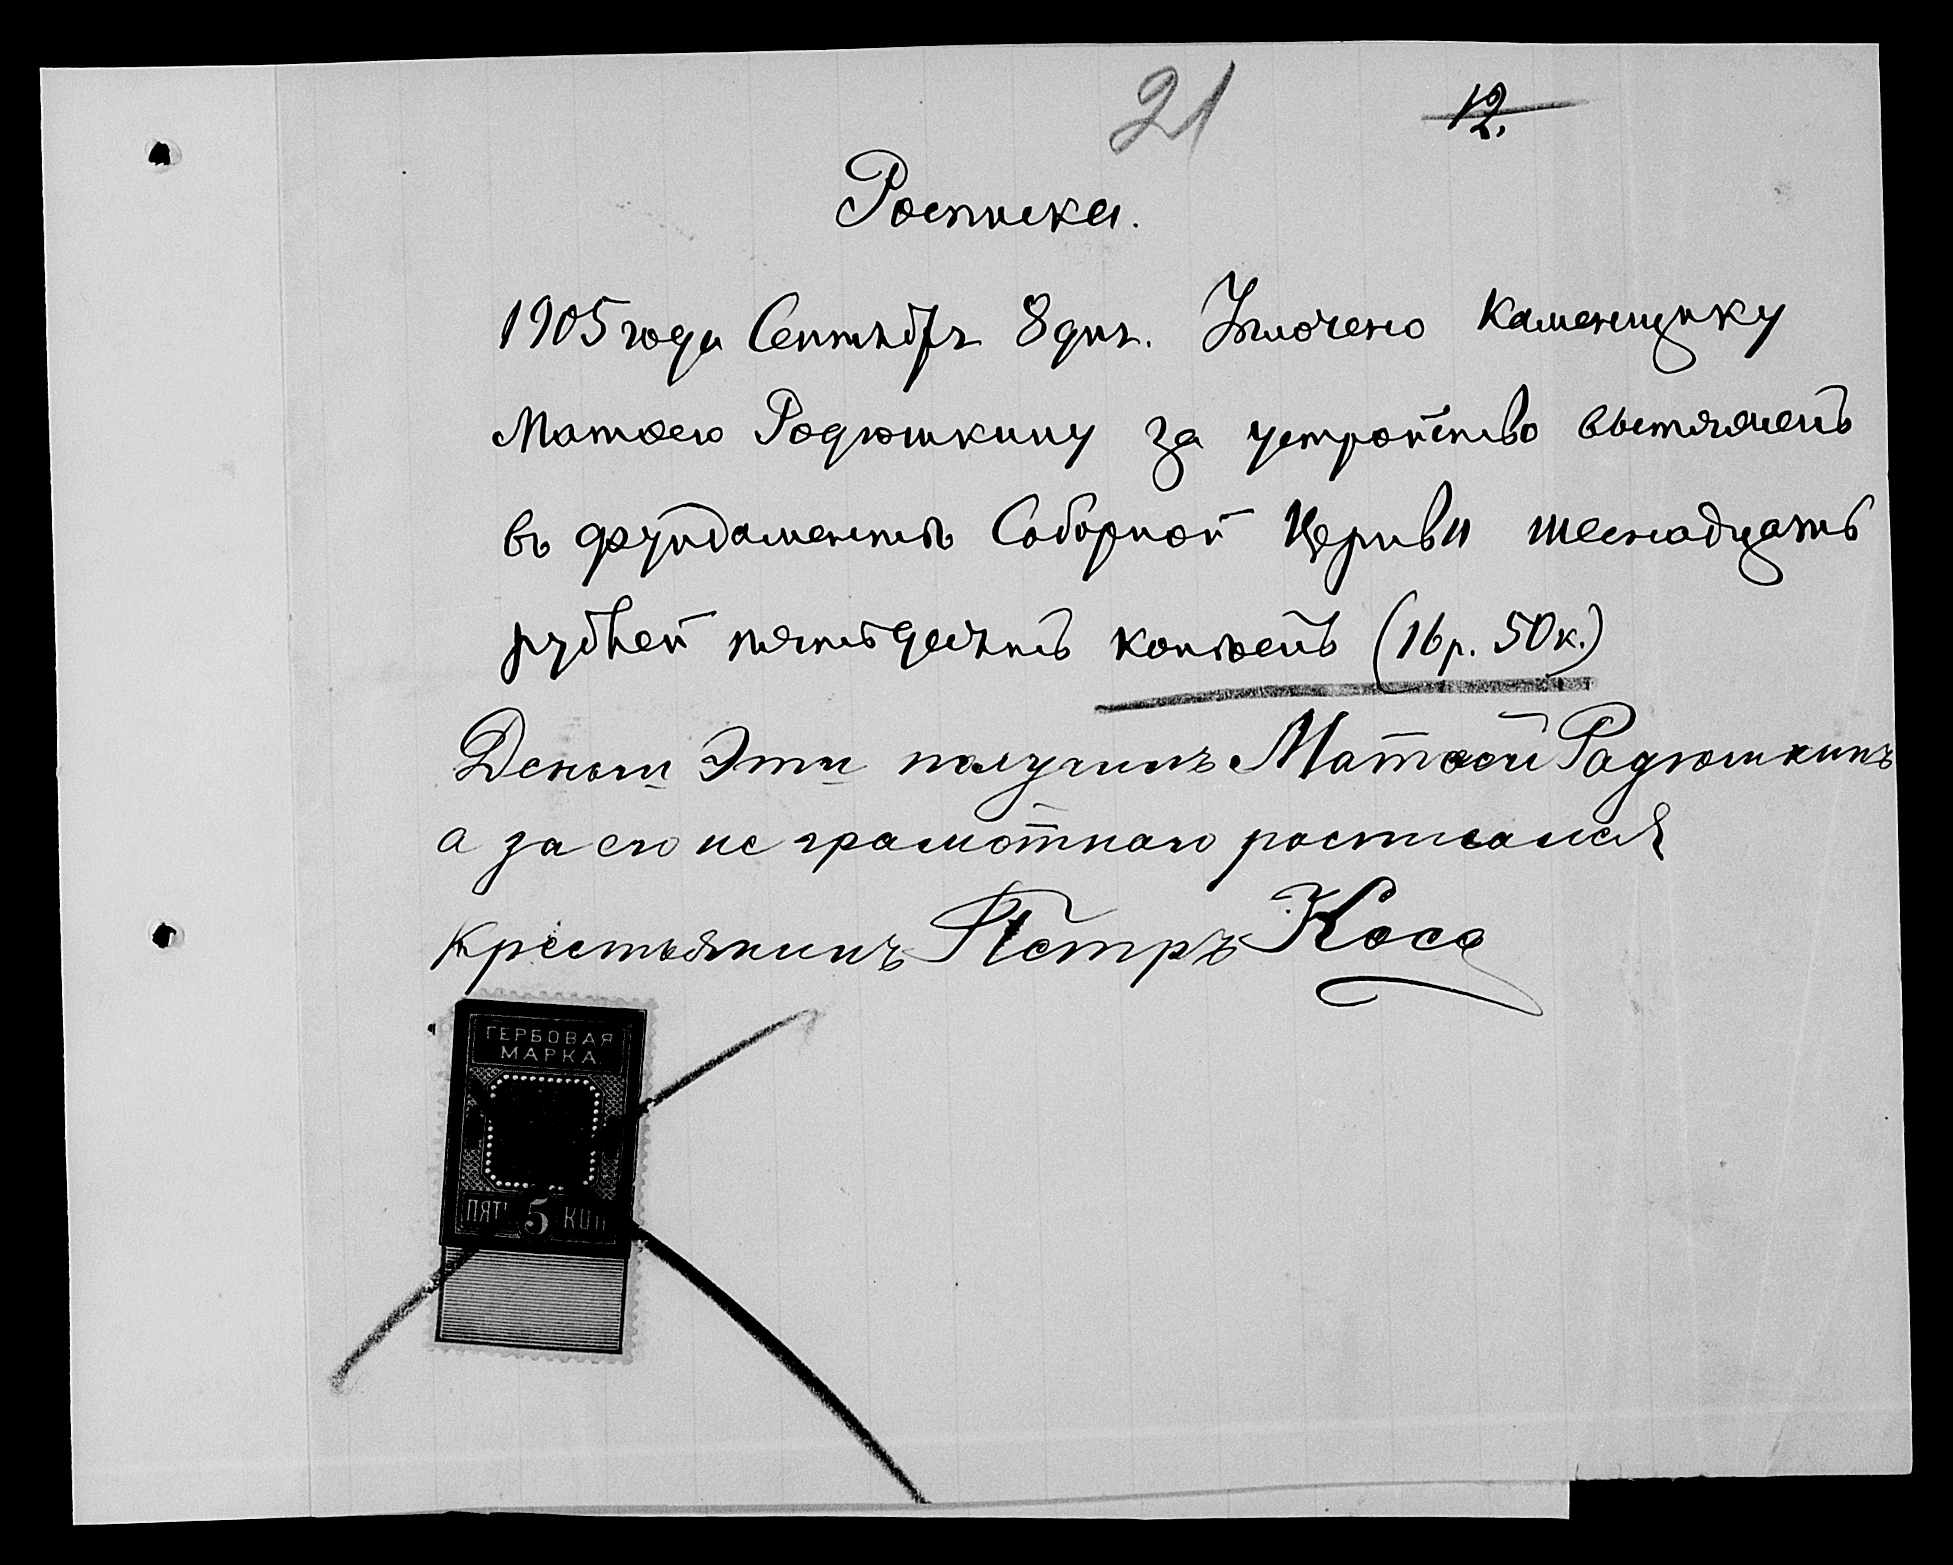 21 12.
Росписка.
1905 года Сентября 8 дня. Уплочено каменщику
Матвею Родюшкину за устройство вытяжекъ
въ фундаментѣ Соборной Церкви шеснадцать
рублей пятьдесятъ копѣекъ (16 р. 50 к.)
Деньги эти получилъ Матвей Радюшкинъ
а за его не грамотнаго росписался
крестьянинъ Петръ Коса
ГЕРБОВАЯ
МАРКА
ПЯТЬ 5 КОП